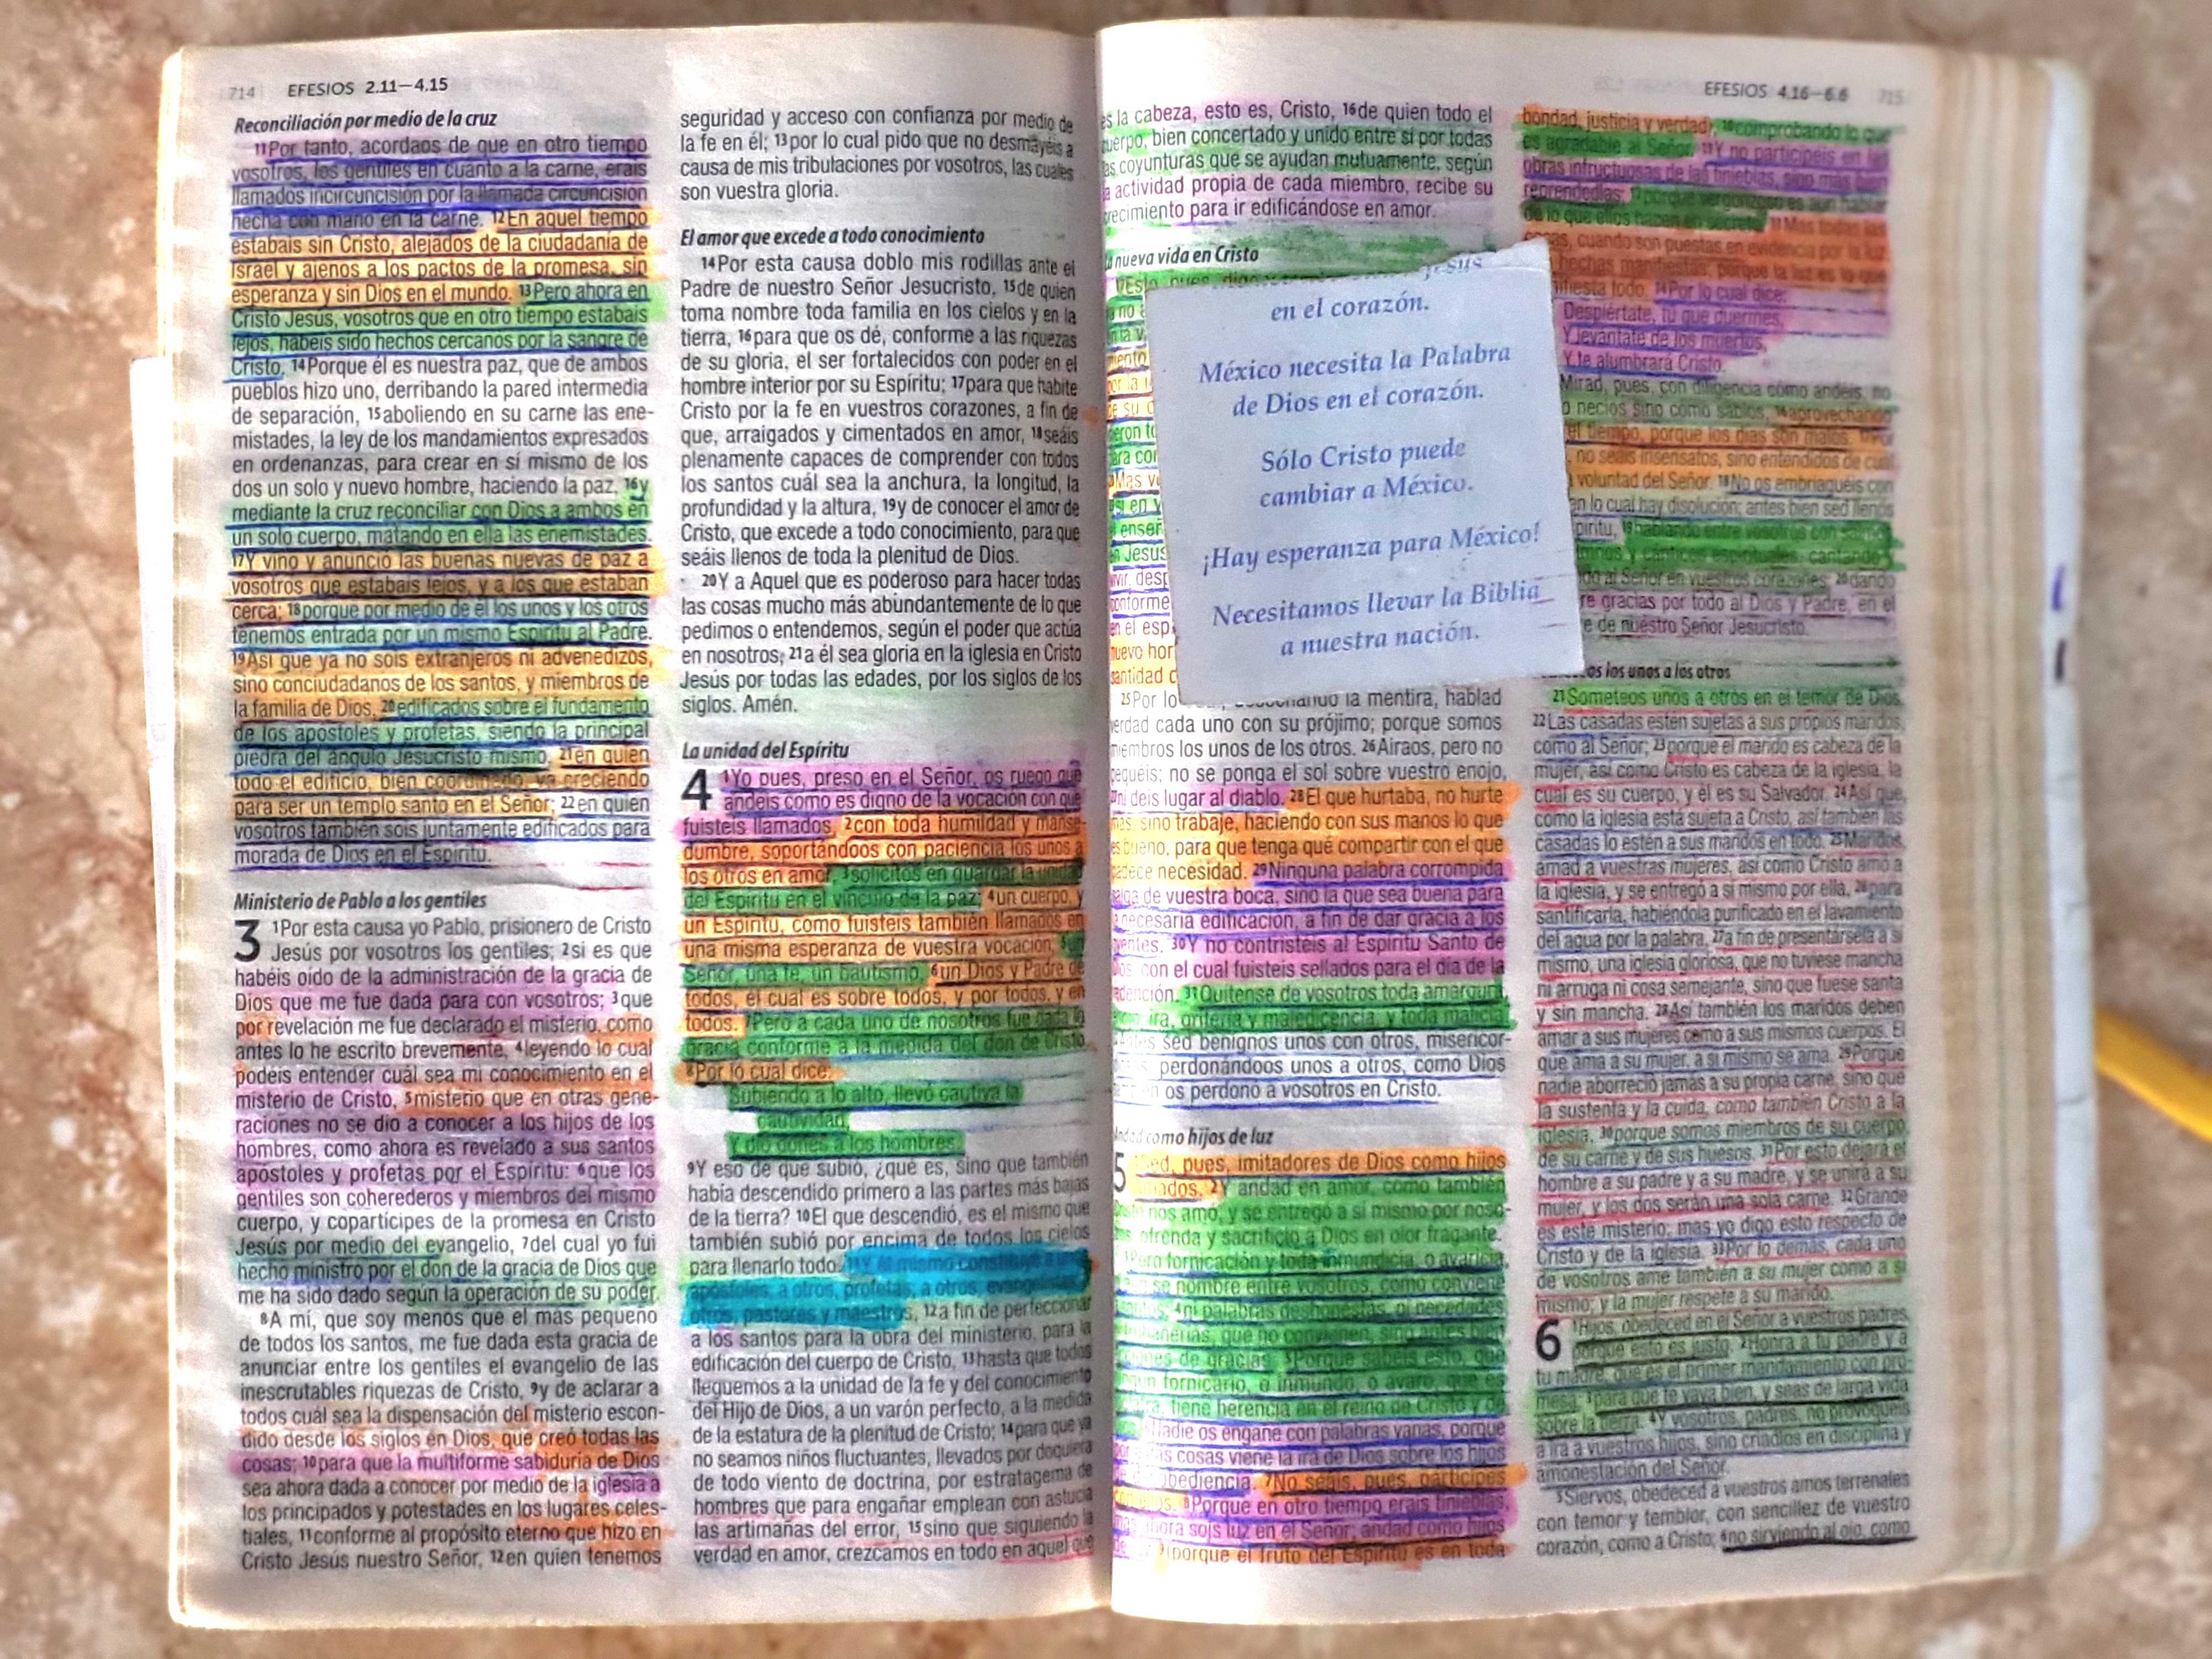 714 EFESIOS 2.11—4.15
Reconciliación por medio de la cruz
11Por tanto, acordaos de que en otro tiempo
vosotros, los gentiles en cuanto a la carne, erais
llamados incircuncisión por la llamada circuncisión
hecha con mano en la carne. 12En aquel tiempo
estabais sin Cristo, alejados de la ciudadanía de
Israel y ajenos a los pactos de la promesa, sin
esperanza y sin Dios en el mundo. 13Pero ahora en
Cristo Jesús, vosotros que en otro tiempo estabais
lejos, habéis sido hechos cercanos por la sangre de
Cristo. 14Porque él es nuestra paz, que de ambos
pueblos hizo uno, derribando la pared intermedia
de separación, 15aboliendo en su carne las ene-
mistades, la ley de los mandamientos expresados
en ordenanzas, para crear en sí mismo de los
dos un solo y nuevo hombre, haciendo la paz, 16y
mediante la cruz reconciliar con Dios a ambos en
un solo cuerpo, matando en ella las enemistades.
17Y vino y anunció las buenas nuevas de paz a
vosotros que estabais lejos, y a los que estaban
cerca; 18porque por medio de él los unos y los otros
tenemos entrada por un mismo Espíritu al Padre.
19Así que ya no sois extranjeros ni advenedizos,
sino conciudadanos de los santos, y miembros de
la familia de Dios, 20edificados sobre el fundamento
de los apóstoles y profetas, siendo la principal
piedra del ángulo Jesucristo mismo, 21en quien
todo el edificio, bien coordinado, va creciendo
para ser un templo santo en el Señor; 22en quien
vosotros también sois juntamente edificados para
morada de Dios en el Espíritu.
Ministerio de Pablo a los gentiles
3 1Por esta causa yo Pablo, prisionero de Cristo
Jesús por vosotros los gentiles; 2si es que
habéis oído de la administración de la gracia de
Dios que me fue dada para con vosotros; 3que
por revelación me fue declarado el misterio, como
antes lo he escrito brevemente, 4leyendo lo cual
podéis entender cuál sea mi conocimiento en el
misterio de Cristo, 5misterio que en otras gene-
raciones no se dio a conocer a los hijos de los
hombres, como ahora es revelado a sus santos
apóstoles y profetas por el Espíritu: 6que los
gentiles son coherederos y miembros del mismo
cuerpo, y copartícipes de la promesa en Cristo
Jesús por medio del evangelio, 7del cual yo fui
hecho ministro por el don de la gracia de Dios que
me ha sido dado según la operación de su poder.
8A mí, que soy menos que el más pequeño
de todos los santos, me fue dada esta gracia de
anunciar entre los gentiles el evangelio de las
inescrutables riquezas de Cristo, 9y de aclarar a
todos cuál sea la dispensación del misterio escon-
dido desde los siglos en Dios, que creó todas las
cosas; 10para que la multiforme sabiduría de Dios
sea ahora dada a conocer por medio de la iglesia a
los principados y potestades en los lugares celes-
tiales, 11conforme al propósito eterno que hizo en
Cristo Jesús nuestro Señor, 12en quien tenemos
seguridad y acceso con confianza por medio de
la fe en él; 13por lo cual pido que no desmayéis a
causa de mis tribulaciones por vosotros, las cuales
son vuestra gloria.
El amor que excede a todo conocimiento
14Por esta causa doblo mis rodillas ante el
Padre de nuestro Señor Jesucristo, 15de quien
toma nombre toda familia en los cielos y en la
tierra, 16para que os dé, conforme a las riquezas
de su gloria, el ser fortalecidos con poder en el
hombre interior por su Espíritu; 17para que habite
Cristo por la fe en vuestros corazones, a fin de
que, arraigados y cimentados en amor, 18seáis
plenamente capaces de comprender con todos
los santos cuál sea la anchura, la longitud, la
profundidad y la altura, 19y de conocer el amor de
Cristo, que excede a todo conocimiento, para que
seáis llenos de toda la plenitud de Dios.
20Y a Aquel que es poderoso para hacer todas
las cosas mucho más abundantemente de lo que
pedimos o entendemos, según el poder que actúa
en nosotros, 21a él sea gloria en la iglesia en Cristo
Jesús por todas las edades, por los siglos de los
siglos. Amén.
La unidad del Espíritu
4 1Yo pues, preso en el Señor, os ruego que
andéis como es digno de la vocación con que
fuisteis llamados, 2con toda humildad y manse-
dumbre, soportándoos con paciencia los unos a
los otros en amor, 3solícitos en guardar la unidad
del Espíritu en el vínculo de la paz; 4un cuerpo, y
un Espíritu, como fuisteis también llamados en
una misma esperanza de vuestra vocación; 5un
Señor, una fe, un bautismo, 6un Dios y Padre de
todos, el cual es sobre todos, y por todos, y en
todos. 7Pero a cada uno de nosotros fue dada la
gracia conforme a la medida del don de Cristo.
8Por lo cual dice:
Subiendo a lo alto, llevó cautiva la
cautividad,
Y dio dones a los hombres.
9Y eso de que subió, ¿qué es, sino que también
había descendido primero a las partes más bajas
de la tierra? 10El que descendió, es el mismo que
también subió por encima de todos los cielos
para llenarlo todo. 11Y él mismo constituyó a
apóstoles; a otros, profetas; a otros, evangelistas;
otros, pastores y maestros, 12a fin de perfeccionar
a los santos para la obra del ministerio, para la
edificación del cuerpo de Cristo, 13hasta que todos
lleguemos a la unidad de la fe y del conocimiento
del Hijo de Dios, a un varón perfecto, a la medida
de la estatura de la plenitud de Cristo; 14para que ya
no seamos niños fluctuantes, llevados por doquiera
de todo viento de doctrina, por estratagema de
hombres que para engañar emplean con astucia
las artimañas del error, 15sino que siguiendo la
verdad en amor, crezcamos en todo en aquel que
EFESIOS 4.16—6.6 715
es la cabeza, esto es, Cristo, 16de quien todo el
cuerpo, bien concertado y unido entre sí por todas
las coyunturas que se ayudan mutuamente, según
la actividad propia de cada miembro, recibe su
crecimiento para ir edificándose en amor.
La nueva vida en Cristo
Jesús
en el corazón.
México necesita la Palabra
de Dios en el corazón.
Sólo Cristo puede
cambiar a México.
¡Hay esperanza para México!
Necesitamos llevar la Biblia
a nuestra nación.
25Por lo la mentira, hablad
verdad cada uno con su prójimo; porque somos
miembros los unos de los otros. 26Airaos, pero no
pequéis; no se ponga el sol sobre vuestro enojo,
27ni deis lugar al diablo. 28El que hurtaba, no hurte
más, sino trabaje, haciendo con sus manos lo que
es bueno, para que tenga qué compartir con el que
padece necesidad. 29Ninguna palabra corrompida
salga de vuestra boca, sino la que sea buena para
la necesaria edificación, a fin de dar gracia a los
oyentes. 30Y no contristéis al Espíritu Santo de
Dios, con el cual fuisteis sellados para el día de la
redención. 31Quítense de vosotros toda amargura,
enojo, ira, gritería y maledicencia, y toda malicia.
sed benignos unos con otros, misericor-
perdonándoos unos a otros, como Dios
os perdonó a vosotros en Cristo.
Andad como hijos de luz
5 Sed, pues, imitadores de Dios como hijos
amados. 2Y andad en amor, como también
Cristo nos amó, y se entregó a sí mismo por noso-
ofrenda y sacrificio a Dios en olor fragante.
Pero fornicación y toda inmundicia, o avaricia,
se nombre entre vosotros, como conviene
santos; 4ni palabras deshonestas, ni necedades,
truhanerías, que no convienen, sino antes bien
acciones de gracias. 5Porque sabéis esto, que
ningún fornicario, o inmundo, o avaro, que es
tiene herencia en el reino de Cristo y de
Nadie os engañe con palabras vanas, porque
por cosas viene la ira de Dios sobre los hijos
desobediencia. 7No seáis, pues, partícipes
8Porque en otro tiempo erais tinieblas,
mas ahora sois luz en el Señor; andad como hijos
de (porque el fruto del Espíritu es en toda
bondad, justicia y verdad), 10comprobando lo que
es agradable al Señor. 11Y no participéis en las
obras infructuosas de las tinieblas, sino más bien
reprendedlas; porque vergonzoso es aun hablar
de lo que ellos hacen en secreto. 13Mas todas las
cosas, cuando son puestas en evidencia por la luz,
hechas manifiestas; porque la luz es lo que
manifiesta todo. 14Por lo cual dice:
Despiértate, tú que duermes,
Y levántate de los muertos,
Y te alumbrará Cristo.
Mirad, pues, con diligencia cómo andéis, no
necios sino como sabios, 16aprovechando
el tiempo, porque los días son malos. 17Por
no seáis insensatos, sino entendidos de cuál
voluntad del Señor. 18No os embriaguéis con
en lo cual hay disolución; antes bien sed llenos
Espíritu, 19hablando entre vosotros
himnos y cánticos espirituales, cantando
al Señor en vuestros corazones; 20dando
gracias por todo al Dios y Padre, en el
de nuestro Señor Jesucristo.
los unos a los otros
21Someteos unos a otros en el temor de Dios.
22Las casadas estén sujetas a sus propios maridos,
como al Señor; 23porque el marido es cabeza de la
mujer, así como Cristo es cabeza de la iglesia, la
cual es su cuerpo, y él es su Salvador. 24Así que,
como la iglesia está sujeta a Cristo, así también las
casadas lo estén a sus maridos en todo. 25Maridos,
amad a vuestras mujeres, así como Cristo amó a
la iglesia, y se entregó a sí mismo por ella, 26para
santificarla, habiéndola purificado en el lavamiento
del agua por la palabra, 27a fin de presentársela a sí
mismo, una iglesia gloriosa, que no tuviese mancha
ni arruga ni cosa semejante, sino que fuese santa
y sin mancha. 28Así también los maridos deben
amar a sus mujeres como a sus mismos cuerpos. El
que ama a su mujer, a sí mismo se ama. 29Porque
nadie aborreció jamás a su propia carne, sino que
la sustenta y la cuida, como también Cristo a la
iglesia, 30porque somos miembros de su cuerpo,
de su carne y de sus huesos. 31Por esto dejará el
hombre a su padre y a su madre, y se unirá a su
mujer, y los dos serán una sola carne. 32Grande
es este misterio; mas yo digo esto respecto de
Cristo y de la iglesia. 33Por lo demás, cada uno
de vosotros ame también a su mujer como a sí
mismo; y la mujer respete a su marido.
6 1Hijos, obedeced en el Señor a vuestros padres,
porque esto es justo. 2Honra a tu padre y a
tu madre, que es el primer mandamiento con pro-
mesa; 3para que te vaya bien, y seas de larga vida
sobre la tierra. 4Y vosotros, padres, no provoquéis
a ira a vuestros hijos, sino criadlos en disciplina y
amonestación del Señor.
5Siervos, obedeced a vuestros amos terrenales
con temor y temblor, con sencillez de vuestro
corazón, como a Cristo; 6no sirviendo al ojo, como